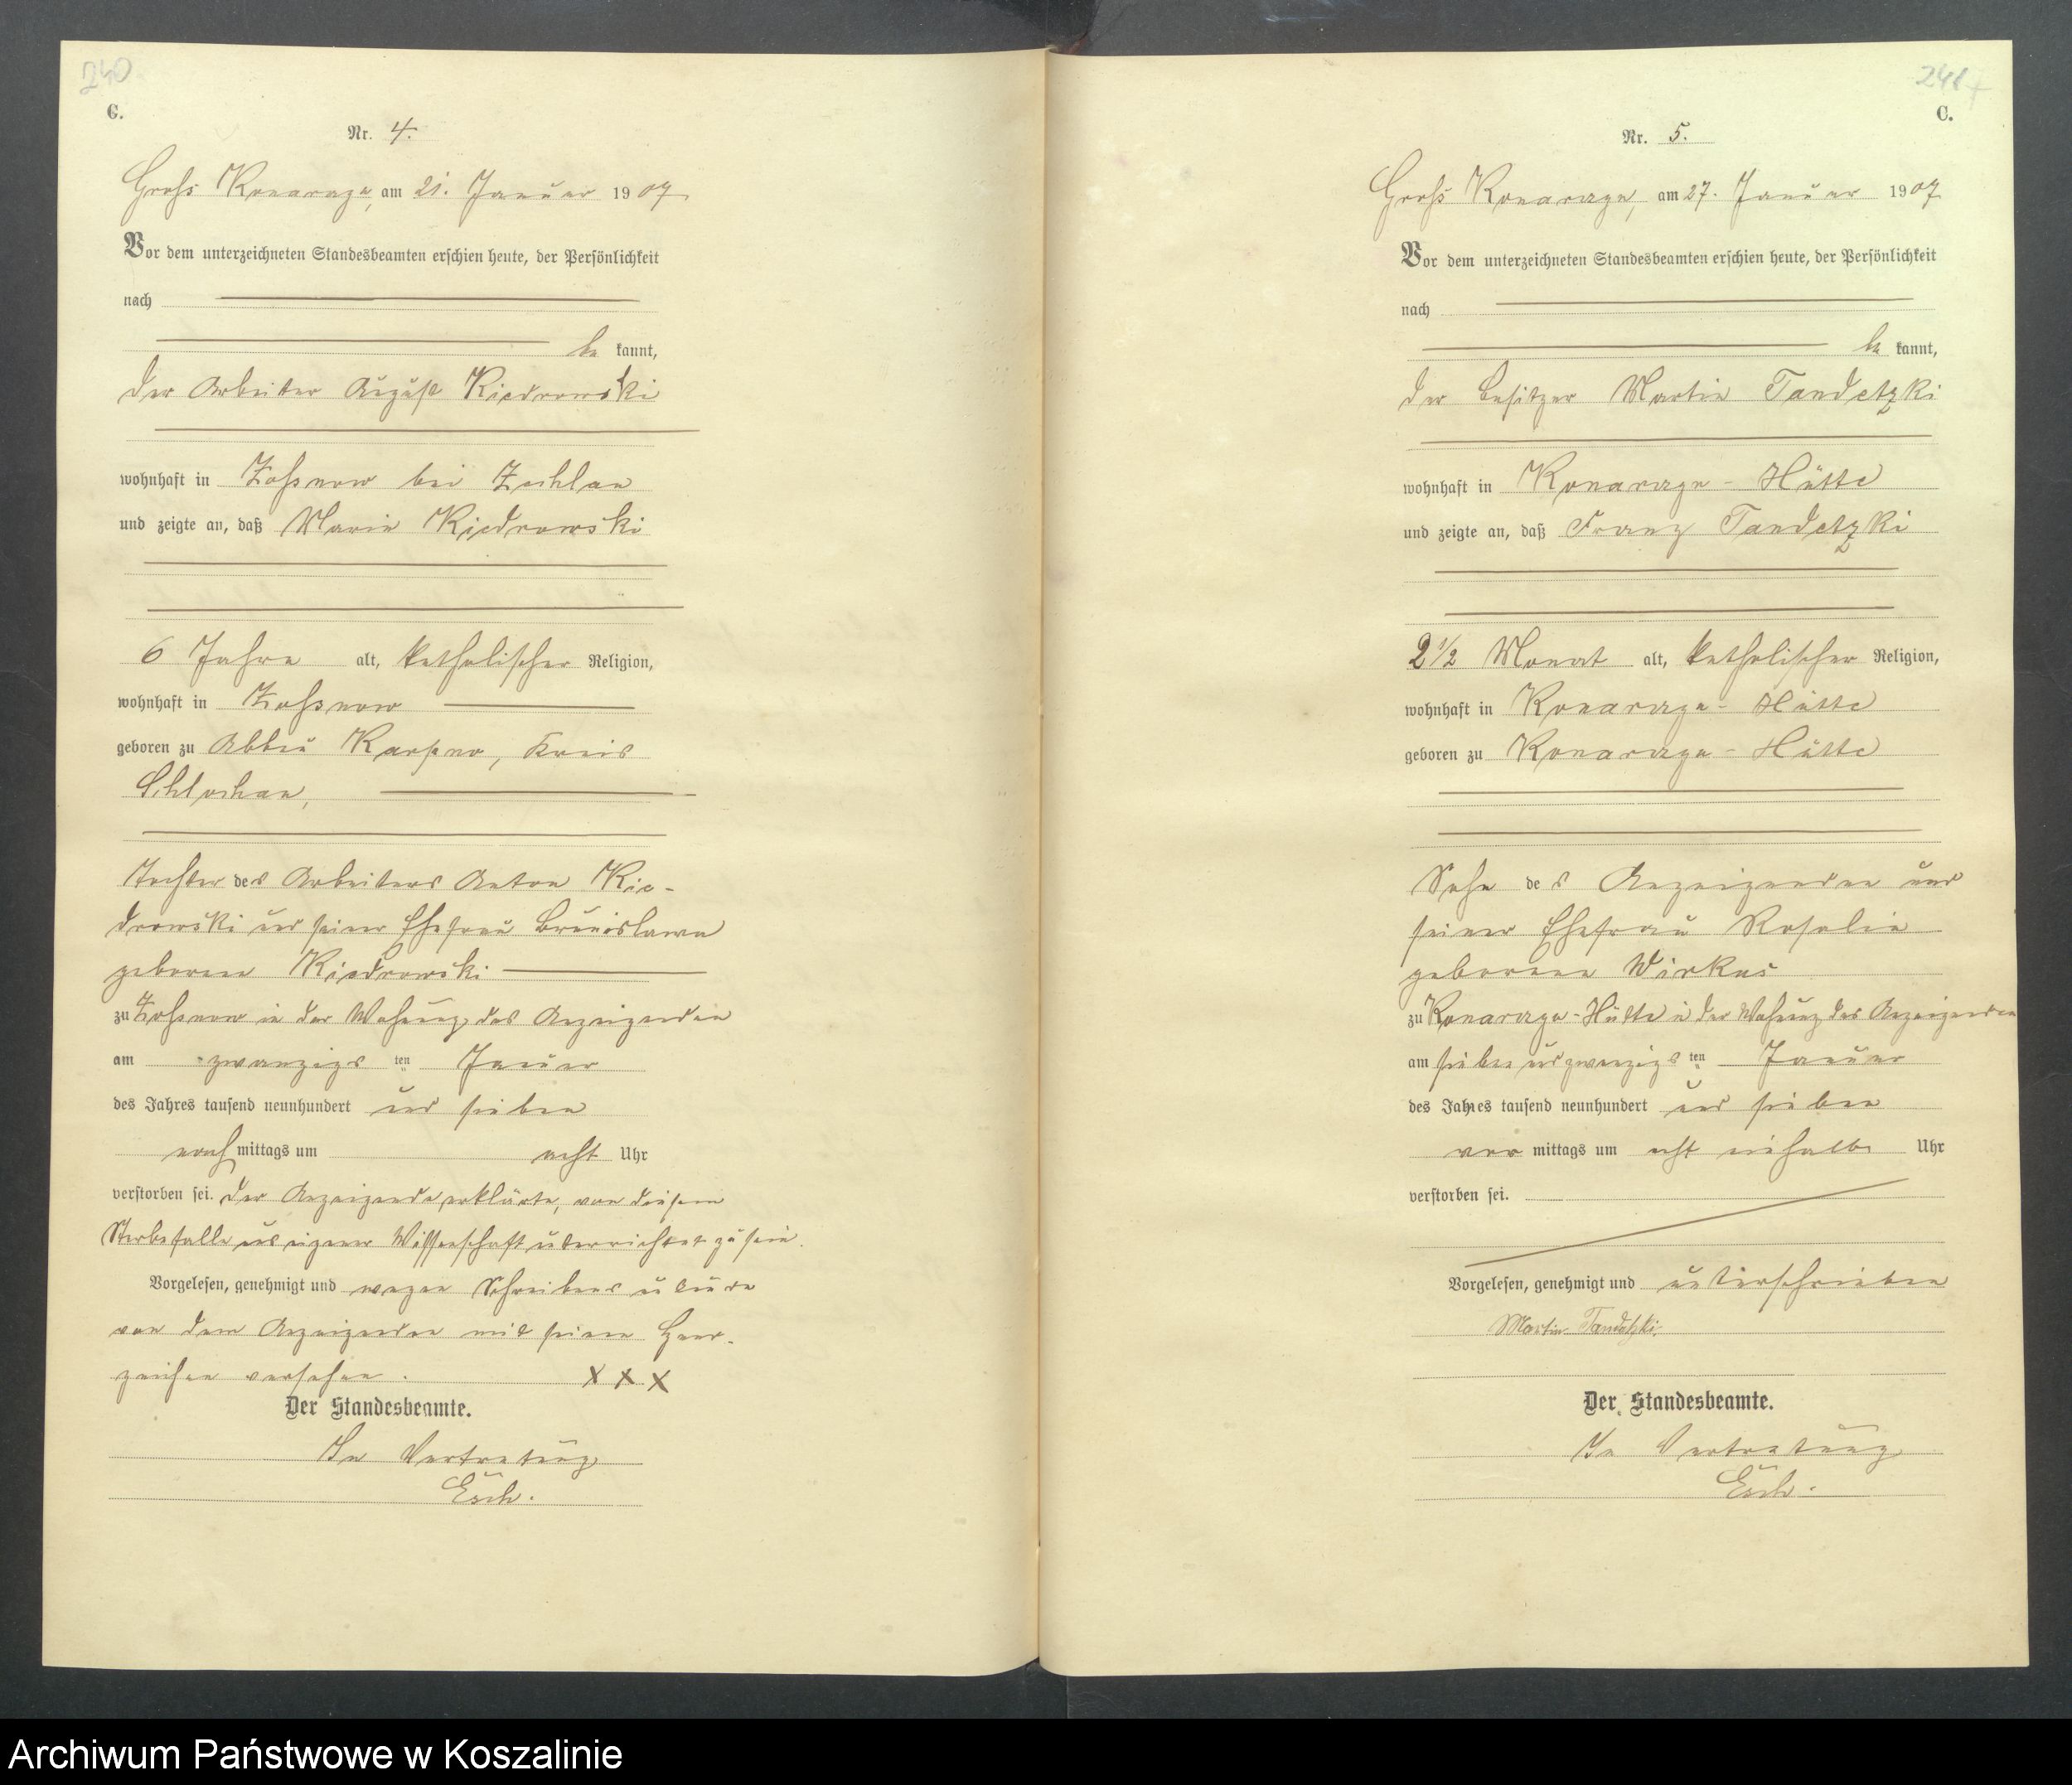 240
C.
Nr. 4.
Groß Konarzyn, am 21. Januar 1907
Vor dem unterzeichneten Standesbeamten erschien heute, der Persönlichkeit
nach
be kannt,
der Arbeiter August Kiedrowski
wohnhaft in Zoßnow bei Zechlau
und zeigte an, daß Marie Kiedrowski
6 Jahre alt, katholischer Religion,
wohnhaft in Zoßnow
geboren zu Abbau Karpno, Kreis
Schlochau,
Tochter des Arbeiters Anton Kie-
drowski und seiner Ehefrau Bronislawa
geborene Kiedrowski
zu Zoßnow in der Wohnung des Anzeigenden
am zwanzigsten Januar
des Jahres tausend neunhundert und sieben
nach mittags um acht Uhr
verstorben sei. Der Anzeigende erklärte, von diesem
Sterbefalle aus eigener Wissenschaft unterrichtet zu sein.
Vorgelesen, genehmigt und wegen Schreibens
von dem Anzeigenden mit seinem Hand-
zeichen versehen. X X X
Der Standesbeamte.
In Vertretung
Esch.
C.
Nr. 5.
Groß Konarzyn, am 27. Januar 1907
Vor dem unterzeichneten Standesbeamten erschien heute, der Persönlichkeit
nach
be kannt,
der Besitzer Martin Tandetzki
wohnhaft in Konarzyn-Hütte
und zeigte an, daß Franz Tandetzki
2 1/2 Monat alt, katholischer Religion,
wohnhaft in Konarzyn-Hütte
geboren zu Konarzyn-Hütte
Sohn des Anzeigenden und
seiner Ehefrau Rosalie
geborenen Wirkus
zu Konarzyn-Hütte in der Wohnung des Anzeigenden
am siebenundzwanzigsten Januar
des Jahres tausend neunhundert und sieben
vor mittags um acht einhalb Uhr
verstorben sei.
Vorgelesen, genehmigt und unterschrieben
Martin Tandetzki.
Der Standesbeamte.
In Vertretung
Esch.
Archiwum Państwowe w Koszalinie